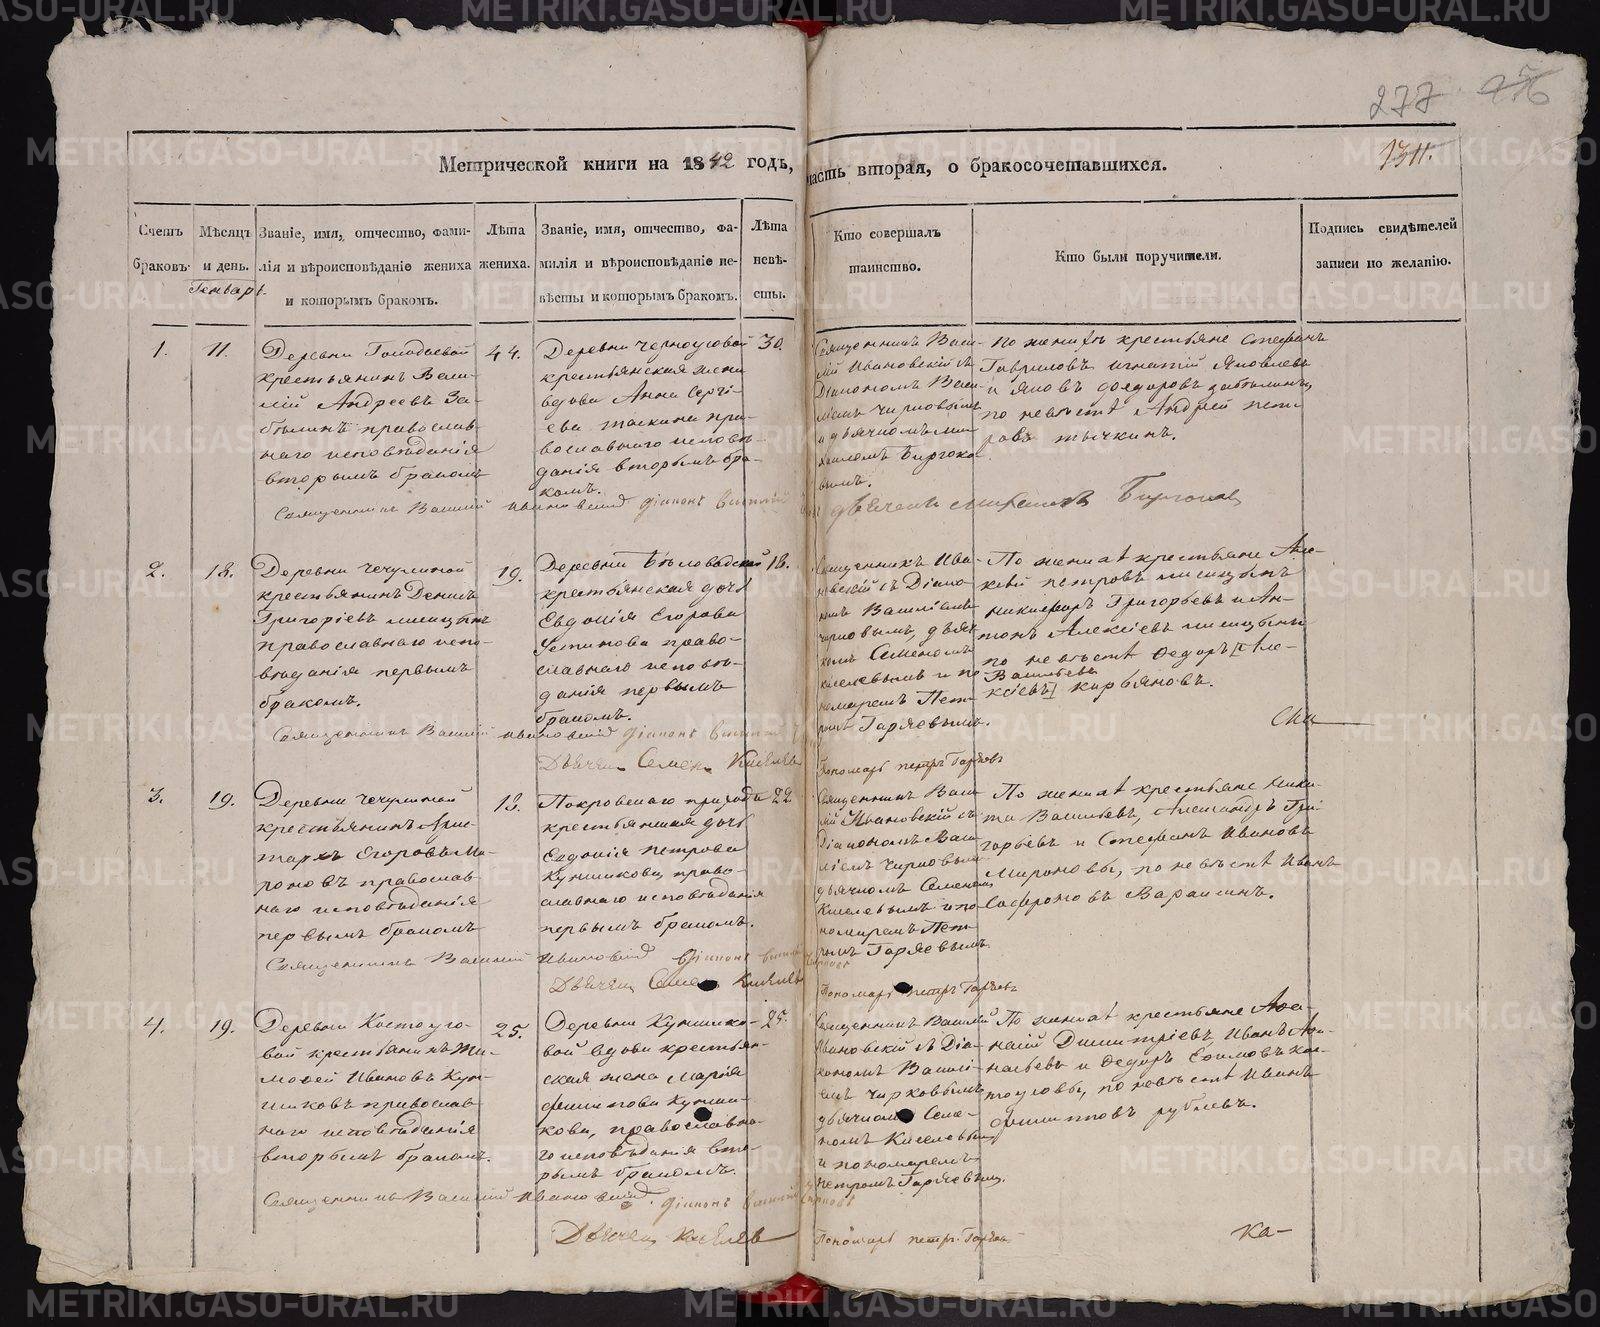 277
1311.
Метрической книги на 1842 годъ, часть вторая, о бракосочетавшихся.
Счетъ браковъ.
Мѣсяцъ и день.
Генварь.
Званіе, имя, отчество, фами-
лія и вѣроисповѣданіе жениха
и которымъ бракомъ.
Лѣта
жениха.
Званіе, имя, отчество, фа-
милія и вѣроисповѣданіе не-
вѣсты и которымъ бракомъ.
Лѣта
невѣ-
сты.
Кто совершалъ
таинство.
Кто были поручители.
Подпись свидѣтелей
записи по желанію.
1.
11.
Деревни Голодаевой
крестьянинъ Васи-
лій Андреевъ За-
былинъ православ-
наго исповѣданія
вторымъ бракомъ
44.
Деревни Черноусовой
крестьянская жена
вдова Анна Сергі-
ева пра-
вославнаго исповѣ-
данія вторымъ бра-
комъ.
30.
Священникъ Васи-
лій Ивановскій съ
Діакономъ Васи-
и дьячкомъ Ми-
хаиломъ Биргоко-
вымъ.
По женихѣ крестьяне Стефанъ
Гавриловъ Игнатій Яковлевъ
и Яковъ Федоровъ Забылины
по невѣстѣ Андрей Пет-
ровъ Тычкинъ.
Священникъ Василий Ивановский Діаконъ Василий
2.
18.
Деревни Чечулиной
крестьянинъ Денисъ
Григоріевъ
православнаго испо-
вѣданія первымъ
бракомъ.
19.
Деревни Бѣловодской
крестьянская дочь
Евдокія Егорова
Устинова право-
славнаго исповѣ-
данія первымъ
бракомъ.
18.
Священникъ Ива-
новскій съ Діако-
номъ Василіемъ
Чирковымъ, дьяч-
комъ Семеномъ
Киселевымъ и по-
номаремъ Пет-
ромъ Гаряевымъ.
По женихѣ крестьяне Але-
ксѣй Петровъ
Никифоръ Григорьевъ и Ан-
тонъ Алексіевъ
по невѣстѣ Федоръ Але-
Васильевъ
ксіевъ Кирьяновъ.
Священникъ Василий Ивановский Діаконъ Василий
Дьячекъ Семенъ Киселевъ
Пономарь Петръ Гаряевъ
3.
19.
Деревни Чечулиной
крестьянинъ Арис-
тархъ Егоровъ Ми-
роновъ православ-
наго исповѣданія
первымъ бракомъ
18.
Покровскаго прихода
крестьянская дочь
Евдокія Петрова
Кунщикова право-
славнаго исповѣданія
первымъ бракомъ.
22.
Священникъ Васи-
лій Ивановскій съ
Діакономъ Васи-
ліемъ Чирковымъ
дьячкомъ Семеномъ
Киселевымъ и по-
номаремъ Пет-
ромъ Гаряевымъ
По женихѣ крестьяне Ники-
та Васильевъ, Александръ Гри-
горьевъ и Стефанъ Ивановъ
Мироновы, по невѣстѣ Иванъ
Сафроновъ Варакинъ.
Священникъ Василий Ивановский Діаконъ
Дьячекъ Семенъ Киселевъ
Пономарь Петръ Гаряевъ
4.
19.
Деревни Костоусо-
вой крестьянинъ Ти-
мофей Ивановъ Кун-
щиковъ православ-
наго исповѣданія
вторымъ бракомъ.
25.
Деревни Кунщико-
вой вдова крестьян-
ская жена Марія
Филипова Кунщи-
кова, православна-
го исповѣданія вто-
рымъ бракомъ.
25.
Священникъ Василій
Ивановскій съ Діа-
кономъ Василі-
емъ Чирковымъ
дьячкомъ Семе-
номъ Киселевымъ
и пономаремъ
Петромъ Гаряевымъ.
По женихѣ крестьяне Афа-
насій Димитріевъ, Иванъ Афа-
насьевъ и Федоръ Ефимовъ Кос-
тоусовы, по невѣстѣ Иванъ
Филипповъ Рублевъ.
Священникъ Василий Ивановский. Діаконъ Василий Чирковъ
Дьячекъ Киселевъ
Пономарь Петръ Гаряевъ
ка-
METRIKI.GASO-URAL.RU